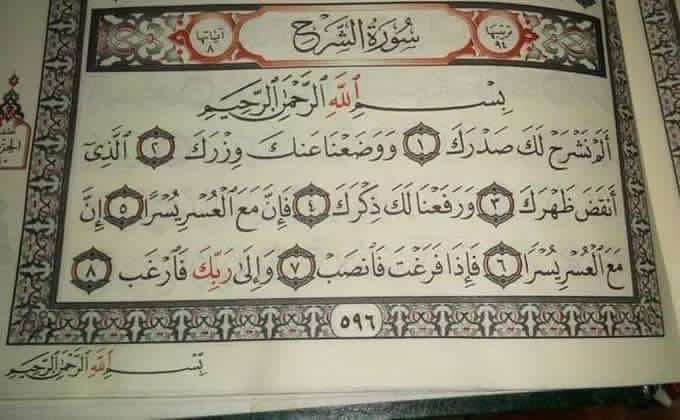 ترتيبها ٩٤ سُورَةُ الشَّرْحِ آياتها ٨
بِسْمِ اللَّهِ الرَّحْمَٰنِ الرَّحِيمِ
أَلَمْ نَشْرَحْ لَكَ صَدْرَكَ ١ وَوَضَعْنَا عَنكَ وِزْرَكَ ٢ الَّذِىٓ
أَنقَضَ ظَهْرَكَ ٣ وَرَفَعْنَا لَكَ ذِكْرَكَ ٤ فَإِنَّ مَعَ الْعُسْرِ يُسْرًا ٥ إِنَّ
مَعَ الْعُسْرِ يُسْرًا ٦ فَإِذَا فَرَغْتَ فَانصَبْ ٧ وَإِلَىٰ رَبِّكَ فَارْغَب ٨
٥٩٦
بِسْمِ اللَّهِ الرَّحْمَٰنِ الرَّحِيمِ